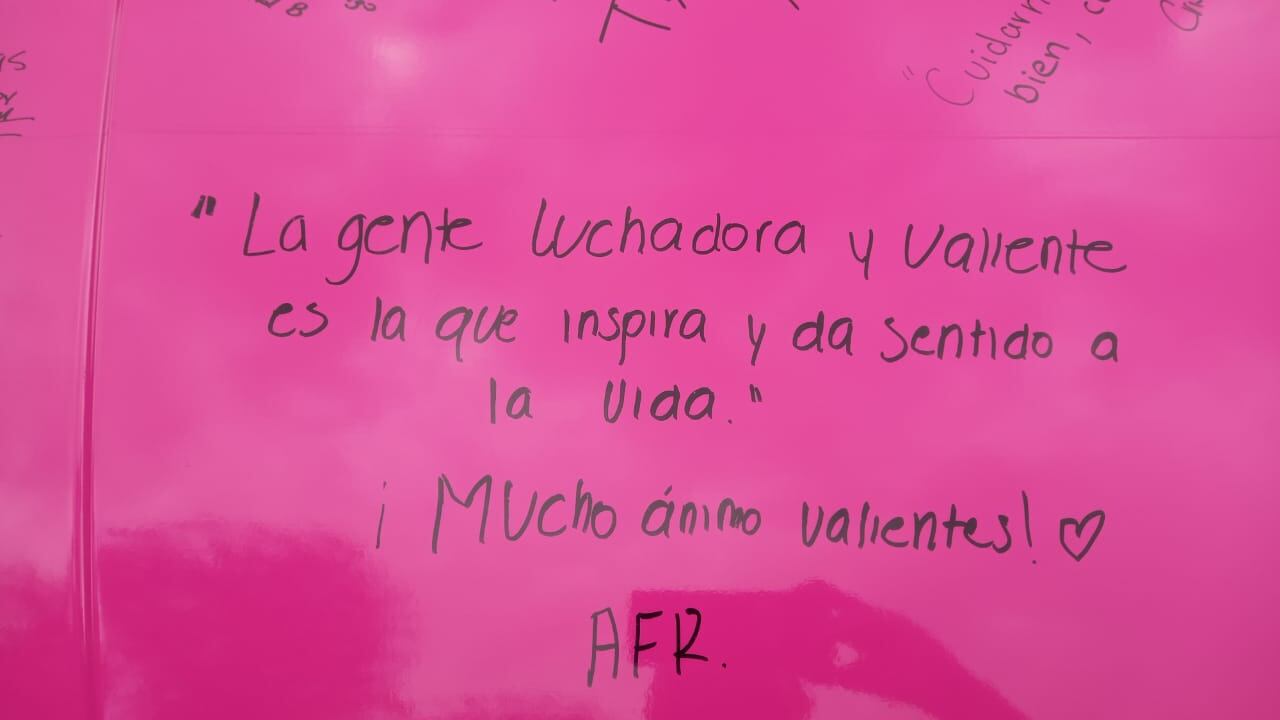 "Cuidarn
bien,
"La gente luchadora y valiente
es la que inspira y da sentido a
la vida."
¡Mucho ánimo valientes! ♡
AFR.